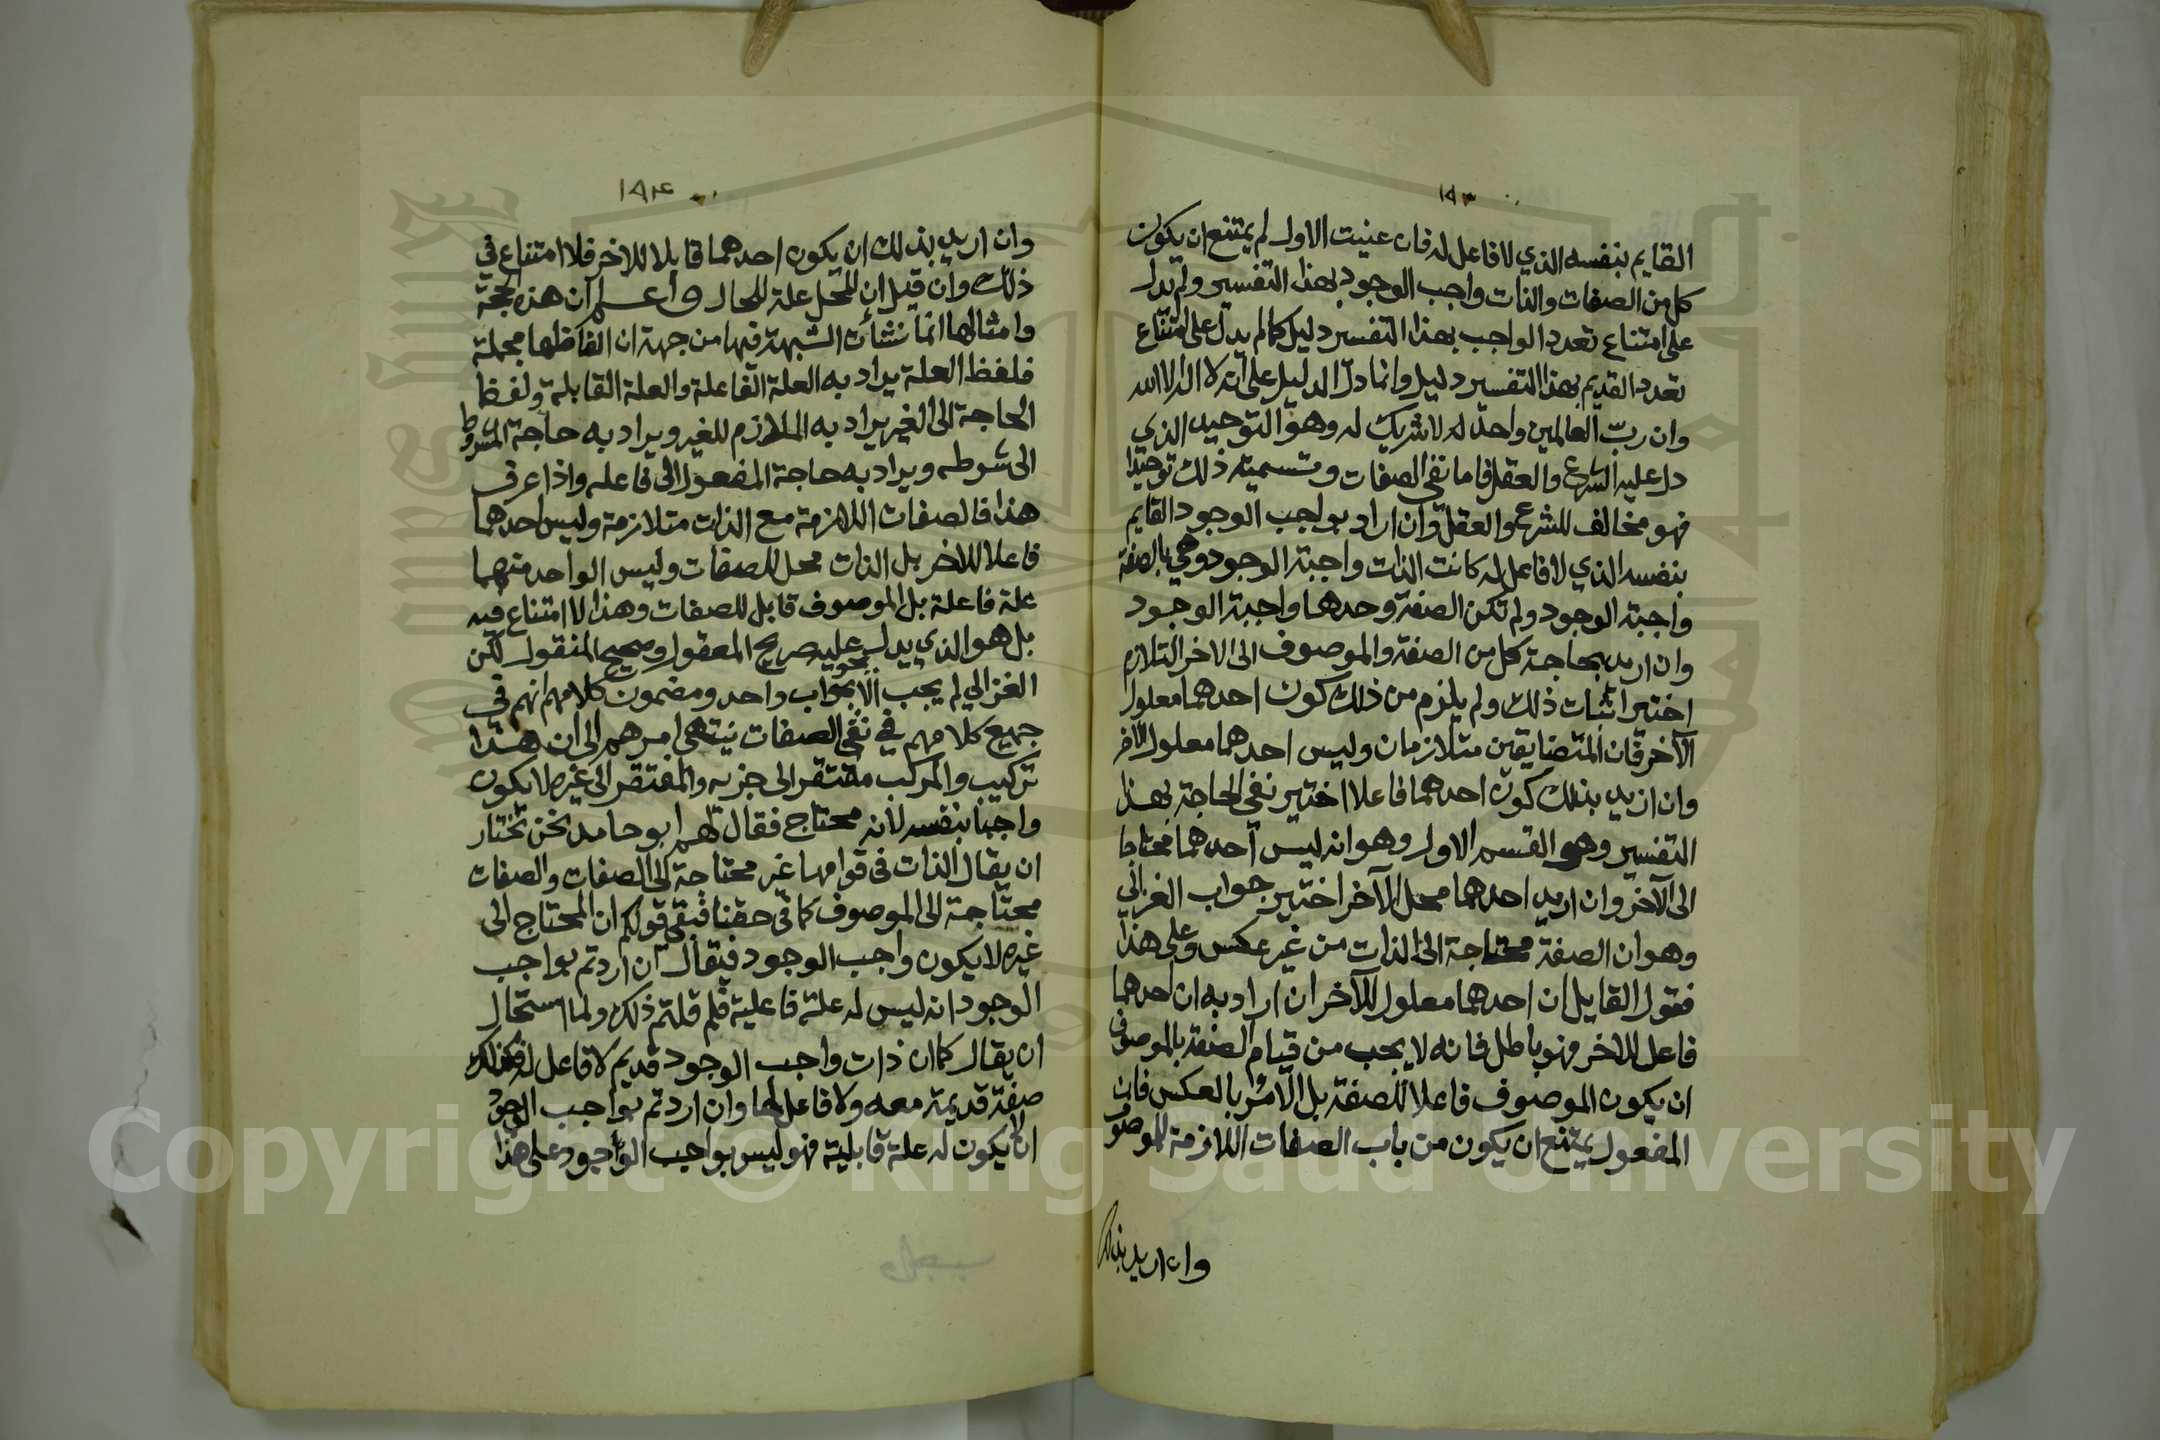 ١٨٣
القايم بنفسه الذي لا فاعل له فان عنيت الاول لم يمتنع ان يكون
كل من الصفات والذات واجب الوجود بهذا التفسير ولم يدل
على امتناع تعدد الواجب بهذا التفسير دليل كما لم يدل على امتناع
تعدد القديم بهذا التفسير دليل وانما دل الدليل على انه لا اله الا الله
وان رب العالمين واحد لا شريك له وهو التوحيد الذي
دل عليه الشرع والعقل فاما نفي الصفات وتسمية ذلك توحيدا
فهو مخالف للشرع والعقل وان اراد بواجب الوجود القايم
بنفسه الذي لا فاعل له كانت الذات واجبة الوجود وهي بالصفة
واجبة الوجود ولم تكن الصفة وحدها واجبة الوجود
وان اريد بحاجة كل من الصفة والموصوف الى الاخر التلازم
اختير اثبات ذلك ولم يلزم من ذلك كون احدهما معلول
الآخر فان المتضايفين متلازمان وليس احدهما معلول الآخر
وان اريد بذلك كون احدهما فاعلا اختير نفي الحاجة بهذا
التفسير وهو القسم الاول وهو انه ليس احدهما محتاجا
الى الآخر وان اريد احدهما محل الآخر اختير جواب الغزالي
وهو ان الصفة محتاجة الى الذات من غير عكس وعلى هذا
فقول القايل ان احدهما معلول للآخر ان اراد به ان احدهما
فاعل للاخر فهو باطل فانه لا يجب من قيام الصفة بالموصوف
ان يكون الموصوف فاعلا للصفة بل الامر بالعكس فان
المفعول يمتنع ان يكون من باب الصفات اللازمة للموصوف
وان اريد بذلك
١٨٤
وان اريد بذلك ان يكون احدهما قابلا للاخر فلا امتناع في
ذلك وان قيل ان المحل علة للحال واعلم ان هذه الحجة
وامثالها انما نشأت الشبهة فيها من جهة ان الفاظها مجملة
فلفظ العلة يراد به العلة الفاعلة والعلة القابلة ولفظ
الحاجة الى الغير يراد به الملازم للغير ويراد به حاجة المشروط
الى شرطه ويراد به حاجة المفعول الى فاعله واذا عرف
هذا فالصفات اللازمة مع الذات متلازمة وليس احدهما
فاعلا للاخر بل الذات محل للصفات وليس الواحد منهما
علة فاعلة بل الموصوف قابل للصفات وهذا لا امتناع فيه
بل هو الذي يدل عليه صريح المعقول وصحيح المنقول لكن
الغزالي لم يجب الا بجواب واحد ومضمون كلامهم انهم في
جميع كلامهم في نفي الصفات ينتهي امرهم الى ان هذا
تركيب والمركب مفتقر الى جزئه والمفتقر الى غيره لا يكون
واجبا بنفسه لانه محتاج فقال لهم ابو حامد نحن نختار
ان يقال الذات في قوامها غير محتاجة الى الصفات والصفات
محتاجة الى الموصوف كما في حقنا فبقي قولكم ان المحتاج الى
غيره لا يكون واجب الوجود فيقال ان اردتم بواجب
الوجود انه ليس له علة فاعلية فلم قلتم ذلك ولما استحال
ان يقال كما ان ذات واجب الوجود قديم لا فاعل له فكذلك
صفة قديمة معه ولا فاعل لها وان اردتم بواجب الوجود
ان لا يكون له علة قابلية فهو ليس بواجب الوجود على هذا
Copyright © King Saud University